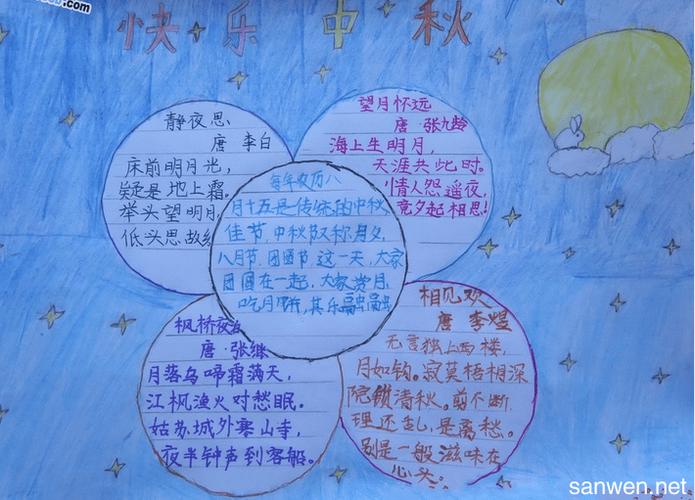 .com
快乐中秋
静夜思
唐 李白
床前明月光，
疑是地上霜。
举头望明月，
低头思故
望月怀远
唐·张九龄
海上生明月，
天涯共此时。
情人怨遥夜，
竟夕起相思！
每年农历八
月十五是传统的中秋
佳节，中秋又称月夕，
八月节，团圆节，这一天，大家
团圆在一起，大家赏月，
吃月饼，其乐融融
枫桥夜泊
唐·张继
月落乌啼霜满天，
江枫渔火对愁眠。
姑苏城外寒山寺，
夜半钟声到客船。
相见欢
唐 李煜
无言独上西楼，
月如钩。寂寞梧桐深
院锁清秋。剪不断，
理还乱，是离愁。
别是一般滋味在
心头。
sanwen.net